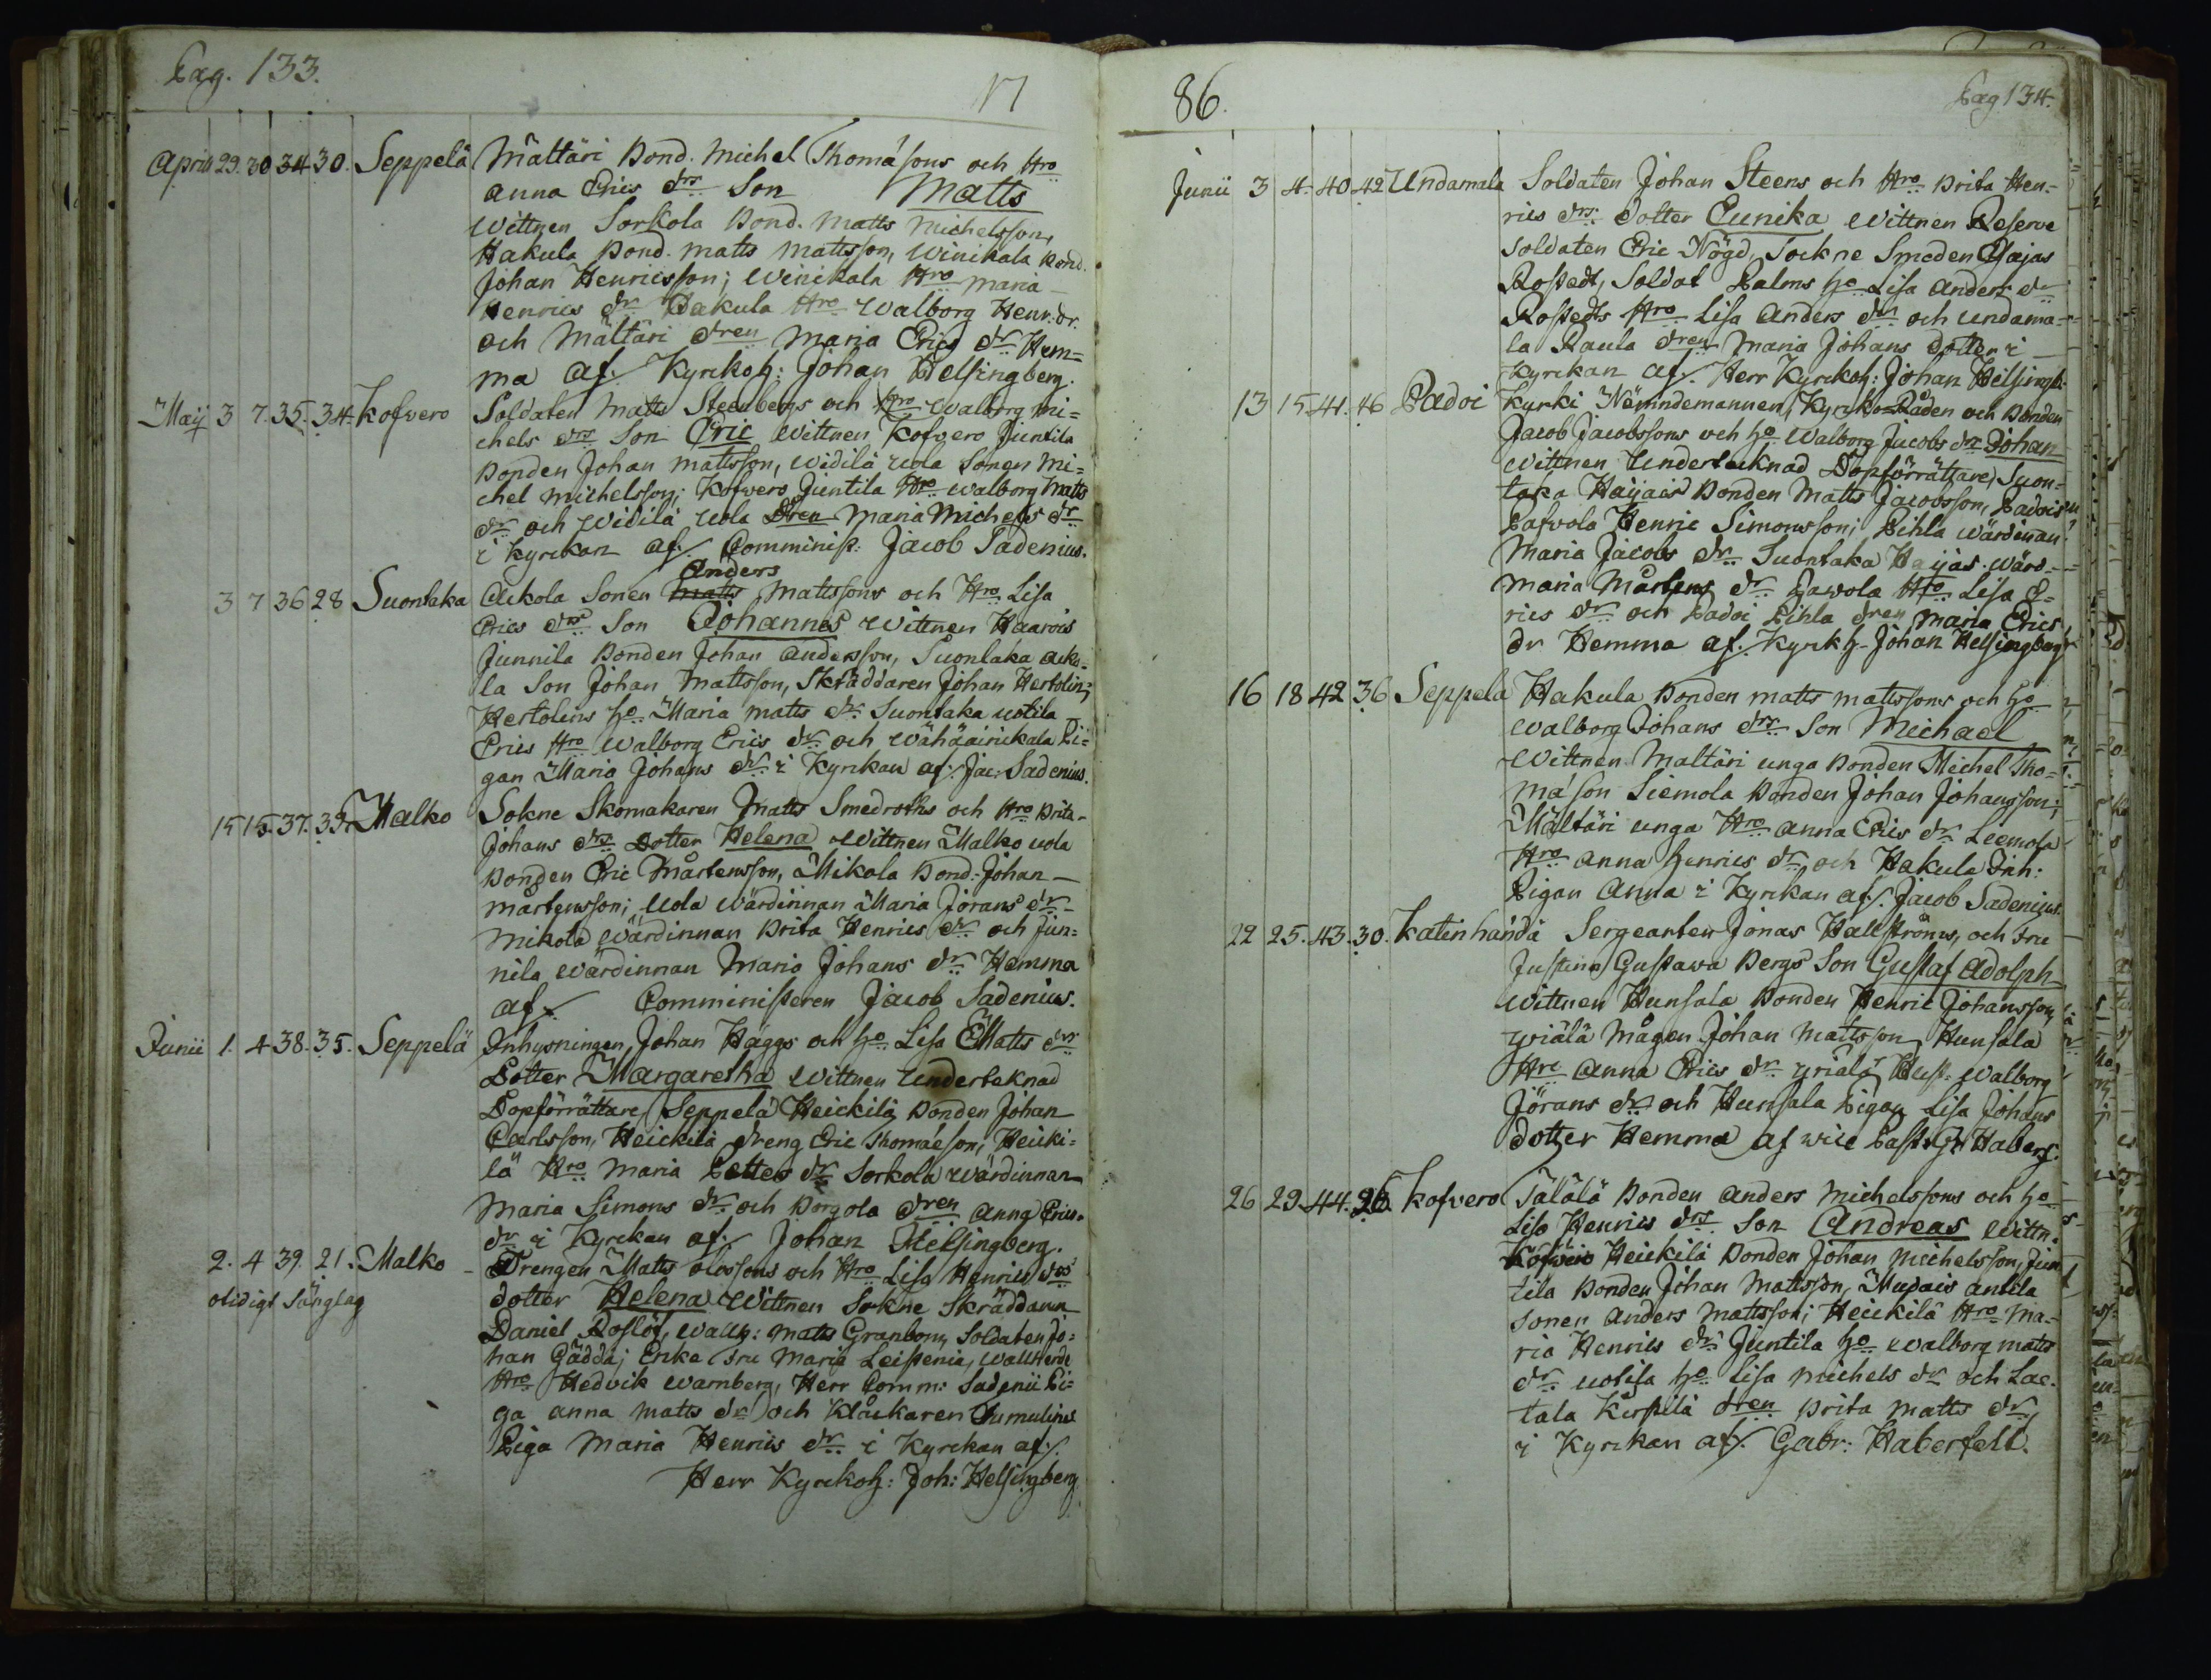 Pag. 133.
17
April 29. 30 34 30. Seppelä Mältäri Bond. Michel Thomæsons och Hro
Anna Erics drs Son Matts
Wittnen Sorkola Bond. Matts Michelsson,
Hakula Bond. Matts Mattsson, Winikala Bond.
Johan Henricsson; Winikala Hro Maria
Henrics dr Hakula Hro Walborg Henr. dr.
och Mältäri dren Maria Erics dr Hem=
ma af. Kyrckoh: Johan Helsingberg.
Maij 3 7. 35. 34. Kofvero Soldaten Matts Steenbergs och Hro Walborg Mi=
chels drs Son Eric Wittnen Kofvero Juntila
Bonden Johan Mattsson, Widilä Uola Sonen Mi=
chel Michelsson; Kofvero Juntila Hro Walborg Matts
dr och Widilä Uola Dren Maria Michels dr
i Kyrckan af. Comminist: Jacob Sadenius.
Anders
3 7 36 28 Suontaka Ackola Sonen Matts Mattssons och Hro Lisa
Erics drs Son Johannes Wittnen Haarois
Junnila Bonden Johan Andersson, Suontaka Acko=
la Son Johan Mattsson, Skräddaren Johan Hertolin;
Hertolins ho Maria Matts dr Suontaka Uotila
Erics Hro Walborg Erics dr och Wähäairickala Pi=
gan Maria Johans dr i Kyrckan af. Jac: Sadenius.
15 15. 37. 39. Malko Sokne Skomakaren Matts Smedroths och Hro Brita
Johans drs Dotter Helena Wittnen Malko Uola
Bonden Eric Mårtensson, Mikola Bond: Johan
Mårtensson; Uola Wärdinnan Maria Jörans dr
Mikola Wärdinnan Brita Henrics dr och Jun=
nila Wärdinnan Maria Johans dr Hemma
af. Comministeren Jacob Sadenius.
Junii 1. 4 38. 35. Seppelä Inhysningen Johan Häggs och ho Lisa Matts drs
Dotter Margaretha Wittnen Undertaknad
Dopförrättare, Seppelä Heickilä Bonden Johan
Carlsson, Heickilä dreng Eric Thomæson; Heicki=
lä Hro Maria Petters dr Sorkola Wärdinnan
Maria Simons dr och Porgola dren Anna Erics
dr i Kyrckan af. Johan Helsingberg.
2. 4 39. 21. Malko Drengen Matts Olossons och Hro Lisa Henrics drs
olidigt Sänglag dotter Helena Wittnen Sokne Skräddaren
Daniel Roslöf, Wallh: Matts Granbom, Soldaten Jo=
han Gädda; Enke Fru Maria Leistenia, Wallherde
Hro Hedvik Warnberg, Herr Comm: Sadenii Pi=
ga Anna Matts dr och Klåckaren
Piga Maria Henrics dr i Kyrckan af.
Herr Kyrckoh: Joh: Helsingberg
86.
Pag 134.
Junii 3 4. 40. 42 Undamala Soldaten Johan Steens och Hro Brita Hen=
rics drs dotter Eunika Wittnen Reserve
Soldaten Eric Nögd, Sockne Smeden Esajas
Rostedt, Soldat Palms ho Lisa Anders dr
Rostedts Hro Lisa Anders dr och Undama=
la Paula dren Maria Johans Dotter i
Kyrckan af. Herr Kyrckoh: Johan Helsingb.
13 15 41. 46 Padoi Kyrki Nämndemannen, Kyrcko-Råden och Bonden
Jacob Jacobssons och ho Walborg Jacobs dr Johan
Wittnen Undertecknad Dopförrättare, Suon=
taka Haijais Bonden Matts Jacobsson, Padois
Pafvola Henric Simonsson; Pihla Wärdinan
Maria Jacobs dr Suontaka Haijas Wärd.
Maria Mårtens dr Pawola Hro Lisa E=
rics dr och Padoi Pihla dren Maria Erics
dr Hemma af. Kyrkh. Johan Helsingberg
16 18 42 36 Seppelä Hakula Bonden Matts Mattssons och ho
Walborg Johans drs Son Michael
Wittnen Mältäri unga Bonden Michel Tho=
mæson Liemola Bonden Johan Johansson;
Mältäri unga Hro Anna Erics dr Leemola
Hro Anna Henrics dr och Hakula Inh:
Pigan Anna i Kyrckan af. Jacob Sadenius.
22 25. 43. 30. Katinhändä Sergeanten Jonas Hallströms, och Fru
Justina Gustawa Bergs Son Gustaf Adolph
Wittnen Hunsala Bonden Henric Johansson,
Yriälä Mågen Johan Mattsson, Hunsala
Hro Anna Erics dr Yriälä Hust. Walborg
Jörans dr och Hunsala Pigan Lisa Johans
dotter Hemma af Wice Past. Gr. Haberf.
26 29 44. 26. Kofvero Tälälä Bonden Anders Michelssons och ho
Lisa Henrics drs Son Andreas Wittn.
Kofvero Heickilä Bonden Johan Michelsson, Jun
tila Bonden Johan Mattsson, Mupais Antila
Sonen Anders Mattsson; Heickilä Hro Ma=
ria Henrics dr Juntila ho Walborg Matts
dr Uotila ho Lisa Michels dr och Lac=
tala Kerpilä dren Brita Matts dr
i Kyrckan af. Gabr: Haberfelt.